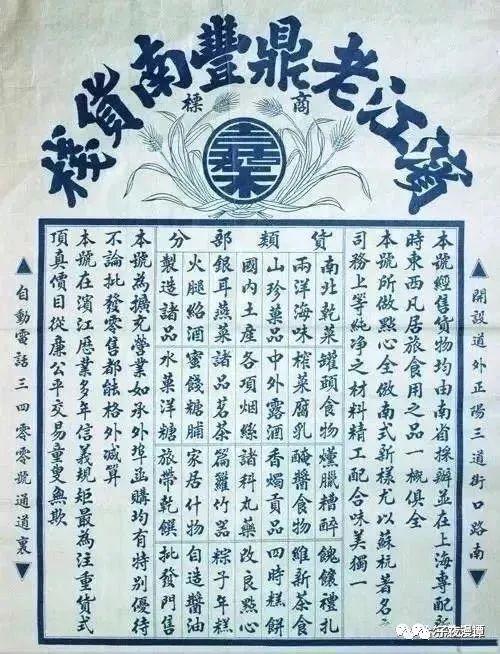 濱江老鼎豐南貨棧
商標
▲開設道外正陽三道街口路南▲
本號經售貨物均由南省採辦並在上海專配新
時東西凡居旅食用之品一概俱全
本號所做點心全倣南式新樣尤以蘇杭著名之
司務上等純淨之材料精工配合味美獨一
貨類部分
南北乾菜 罐頭食物 燻臘糟醉 餽饋禮扎
兩洋海味 榨菜腐乳 醃醬食物 維新茶食
山珍菓品 中外露酒 香燭貢品 四時糕餅
國內土産 各項烟絲 諸料丸藥 改良點心
銀耳燕菜 諸品茗茶 篇籮竹器 粽子年糕
火腿紹酒 蜜餞糖脯 家居什物 自造醬油
製造諸品 水菓洋糖 旅帶乾饌 批發門售
本號為擴充營業如承外埠函購均有特別優待
不論批發零售都能格外減算
本號在濱江歷業多年信義規矩最為注重貨式
頂真價目從廉公平交易童叟無欺
▲自動電話三四零零號通道裏▲
子夜漫譚